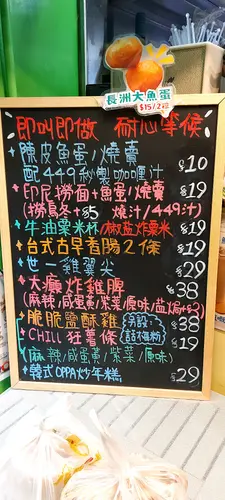 長洲大魚蛋
$15/2粒
即叫即做 耐心等候
陳皮魚蛋/燒賣 $10
配449秘製咖喱汁
印尼撈面+魚蛋/燒賣 $19
(撈烏冬+$5 燒汁/449汁)
牛油粟米杯/椒鹽炸粟米 $19
台式古早香腸2條 $19
世一雞翼尖 $29
大癲炸雞髀 $38
(麻辣/咸蛋黃/紫菜/原味/鹽焗+$3)
脆脆鹽酥雞 $38
CHILL狂薯條 $19
(麻辣/咸蛋黃/紫菜/原味)
韓式OPPA炒年糕 $29